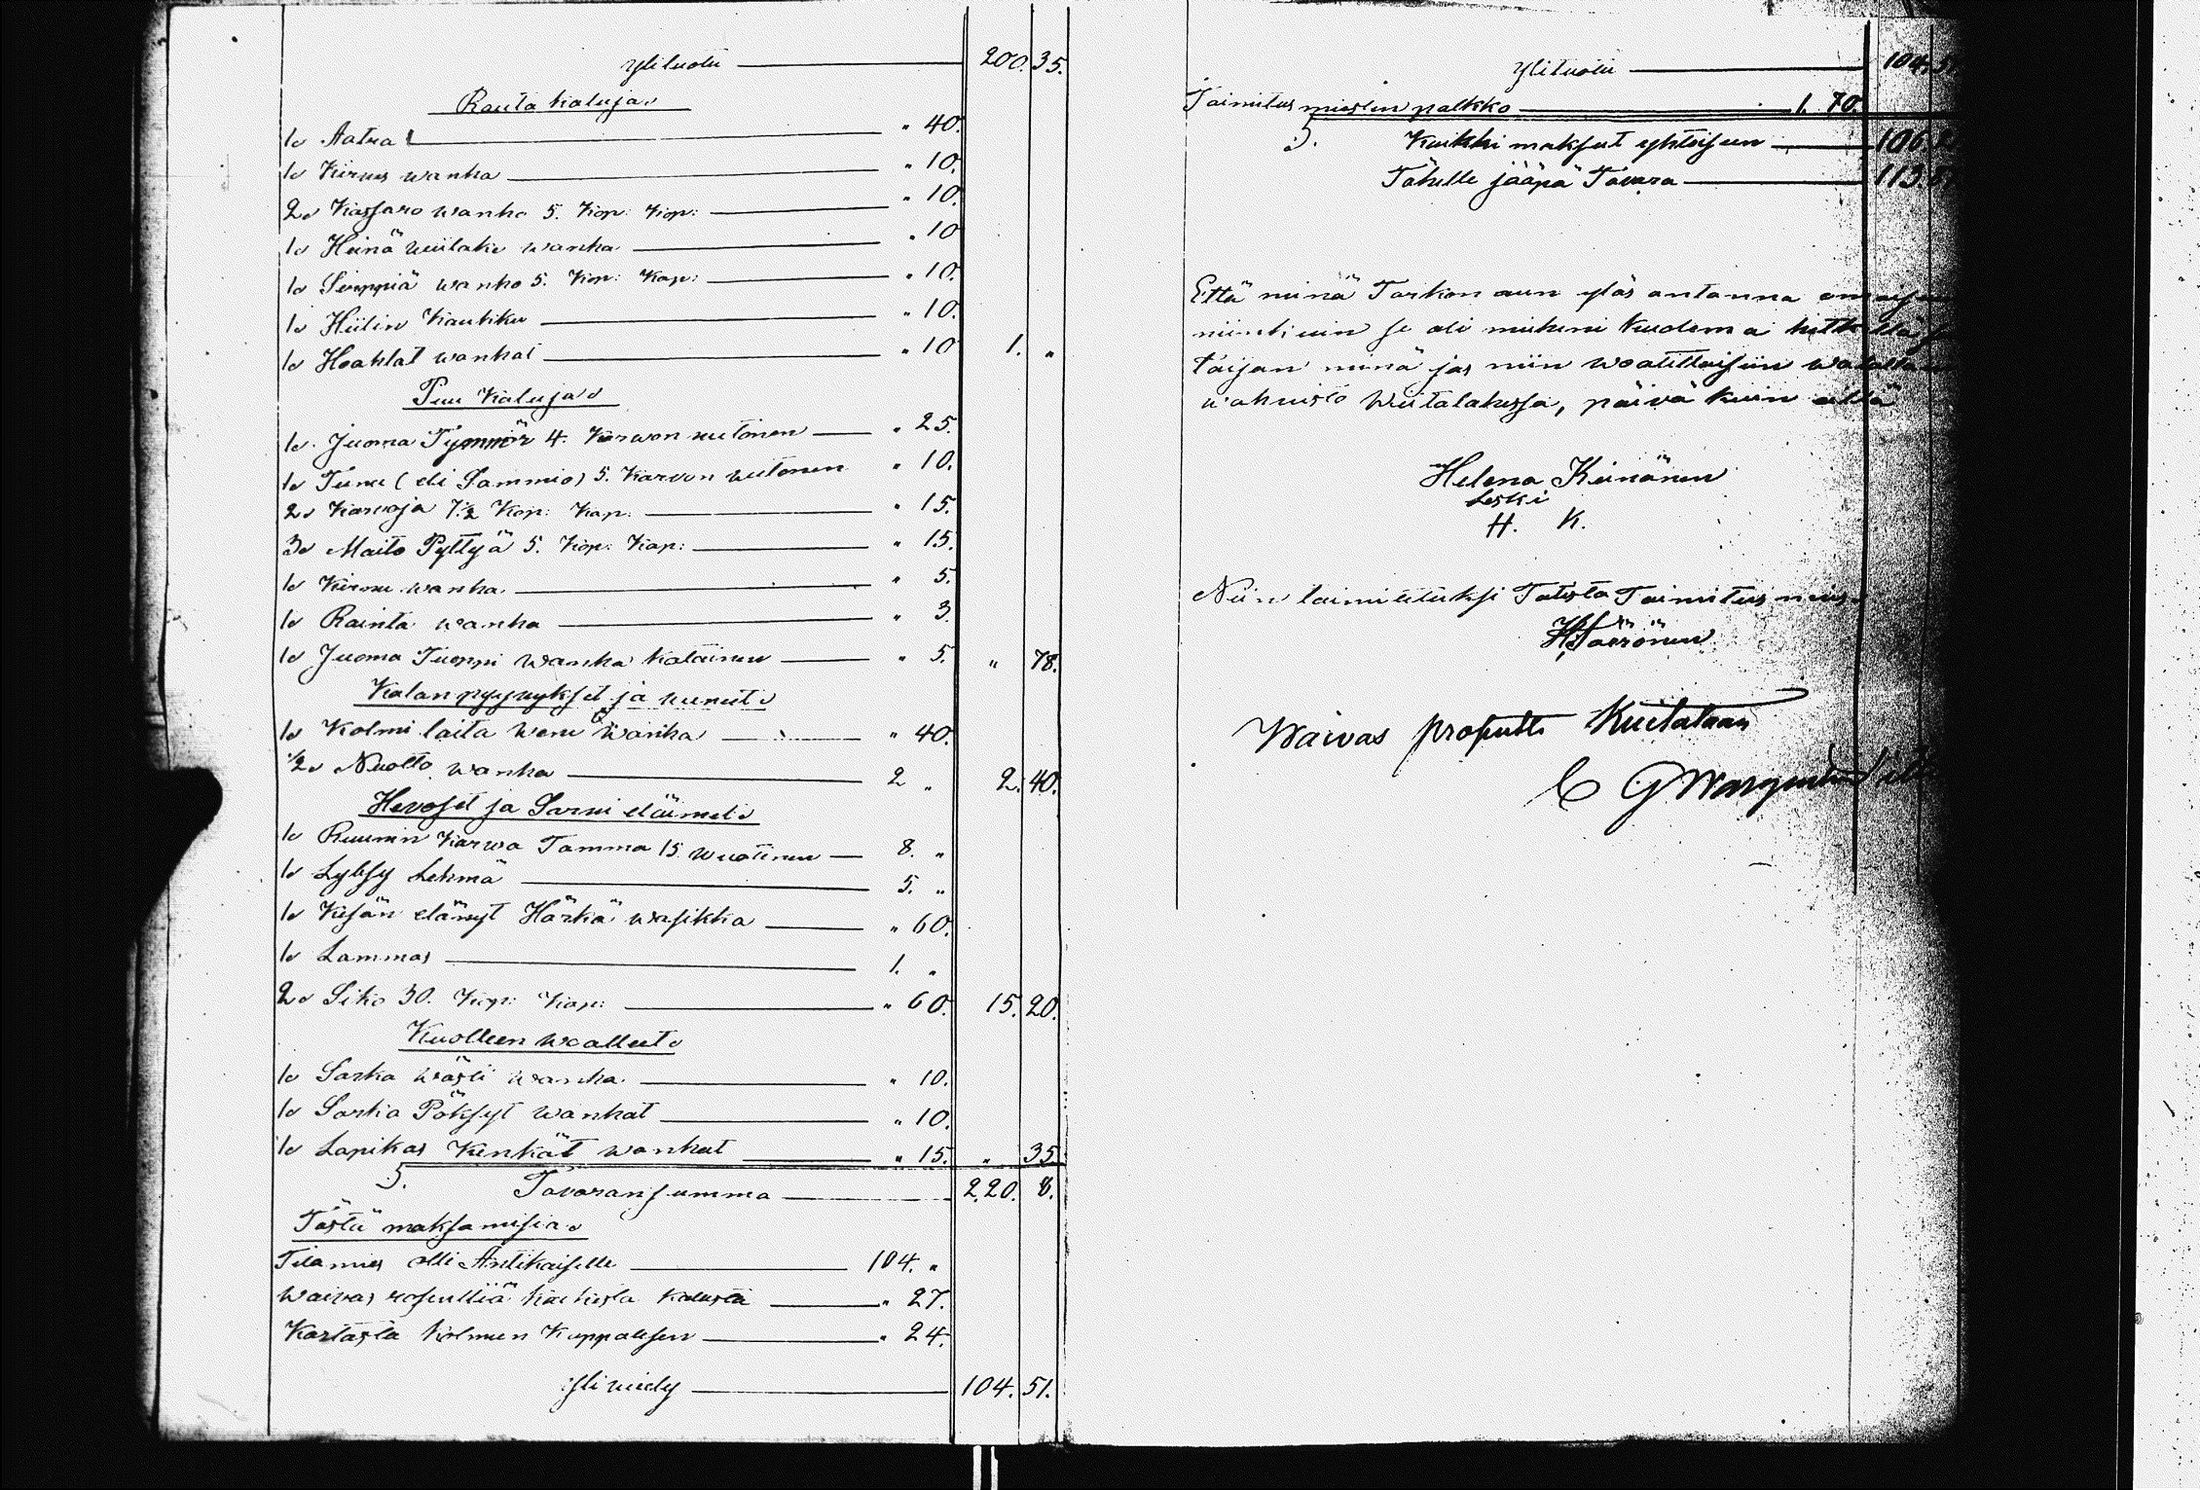 Ylituotu 200. 35.
Rauta kaluja
1 Aatra " 40.
1 Kirves wanha " 10.
2 Kassaro wanha 5. Kop: Kap: " 10.
1 Heinä wiitake wanha " 10
1 Sirppiä wanha 5. Kop: Kap: " 10.
1 Hiilin Kautiku " 10.
1 Haahlat wanhat " 10 1. "
Puu Kaluja
1 Juoma Tynnör 4. Karwon wetonen " 25.
1 Tiinu (eli Sammio) 5. Karvon wetonen " 10.
2 Karwoja 7½ Kop: Kap: " 15.
3 Maito Pyttyä 5. Kop: Kap: " 15.
1 Kirnu wanha " 5.
1 Rainta wanha " 3.
1 Juoma Tuoppi wanha katainen " 5. " 78.
Kalan pyyykset ja wenet
1 Kolmi laita wene wanha " 40.
½ Nuotto wanha 2 " 2. 40.
Hevoset ja Sarwi eläimet
1 Ruunin Karwa Tamma 15 wuotinen 8. "
1 Lybsy Lehmä 5. "
1 Kesän elänyt Härkä wasikka " 60.
1 Lammas 1. "
2 Sika 30. Kop: Kap: " 60. 15. 20.
Kuolleen waatteet
1 Sarka wästi wanha " 10.
1 Sarka Pöksyt wanhat " 10.
1 Lapikas Kenkät wanhat " 15. " 35
S. Tavaran summa 220. 8.
Tästä maksamisia
Tilamies Olli Antikaiselle 104. "
Waivas rosenttiä kaikesta kalusta " 27.
Kartasta Kolmen Kappalesen " 24.
Yli viedy 104. 51.
Ylituotu 104.
Toimitus miesten palkko 1. 70.
S. Kaikki maksut yhtesen 106
Tähelle jääpä Tavara 113.
Että minä Tarkon aun ylös antanna
niinkuin se oli mieheni kuolema
taijan minä jos niin waatittaisiin
wahwisto Wiitalakessa, päivä kuin
Helena Keinänen
Leski
H. K.
Niin toimitetuksi Totista Toimitus mies
H. Päärönen
Waivas prosentti Kuitataan
C G